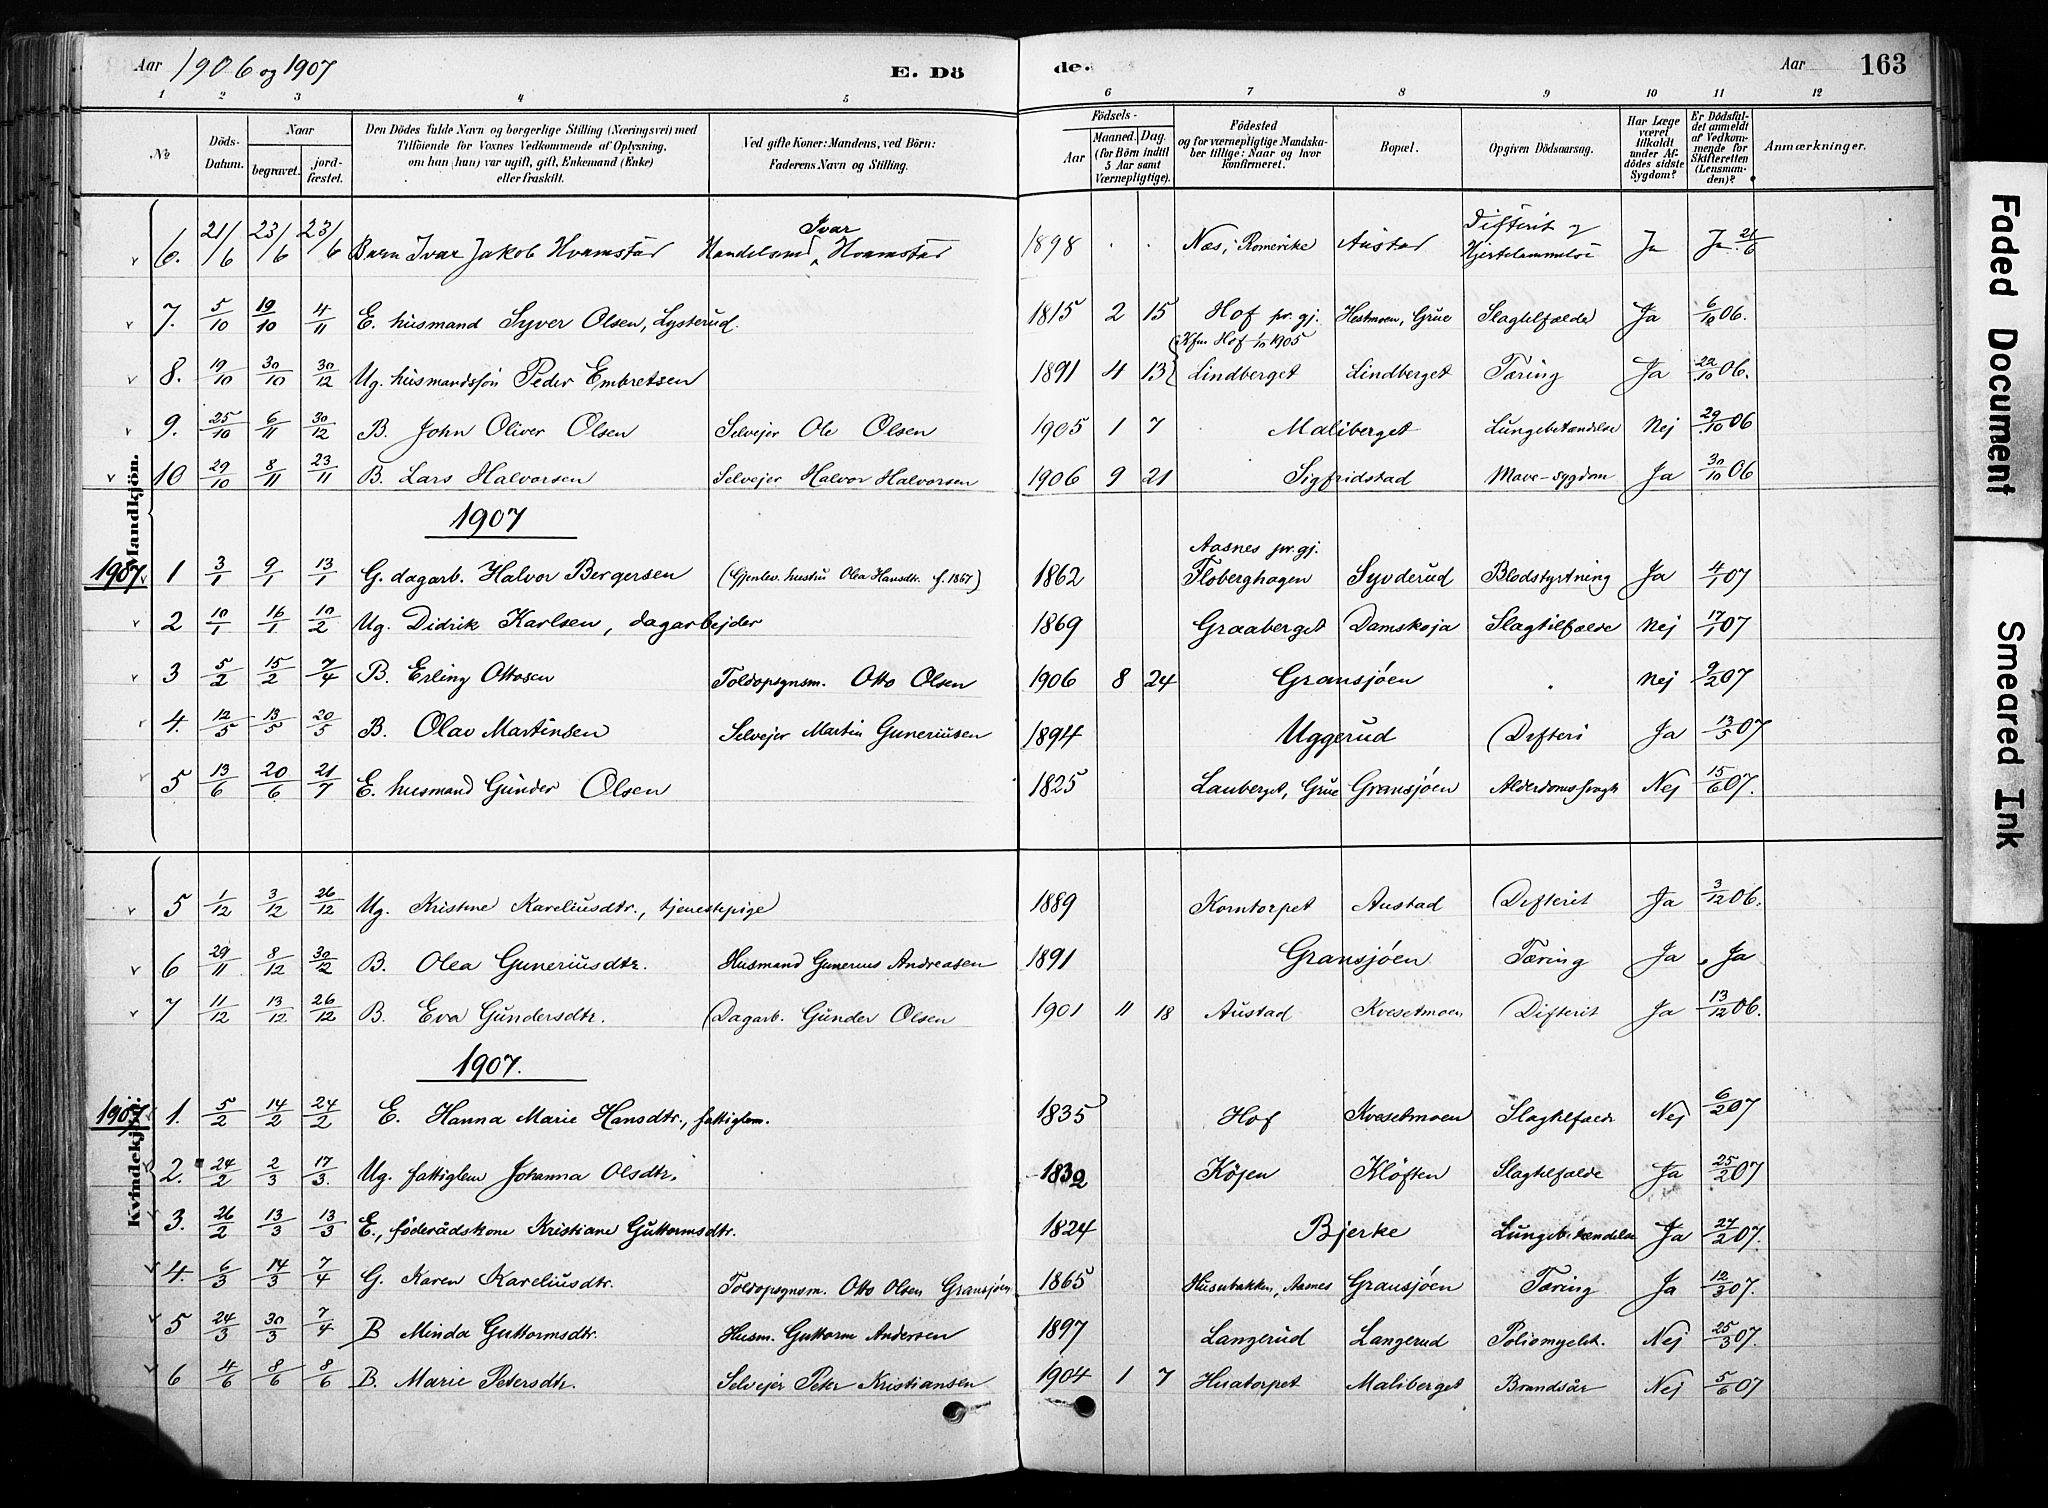 Aar 1906 og 1907 E. Dö de. Aar 163
1 2 3 4 5 6 7 8 9 10 11 12
No. Döds-Datum. Naar begravet. jord-fæstet. Den Dödes fulde Navn og borgerlige Stilling (Næringsvei) med Tilföiende for Voxnes Vedkommende af Oplysning, om han (hun) var ugift, gift, Enkemand (Enke) eller fraskilt. Ved gifte Koner: Mandens, ved Börn: Faderens Navn og Stilling. Födsels- Aar Maaned. Dag. (for Börn indtil 5 Aar samt Værnepligtige). Födested og for værnepligtige Mandskaber tillige: Naar og hvor konfirmeret. Bopæl. Opgiven Dödsaarsag. Har Læge været tilkaldt under Afdödes sidste Sygdom? Er Dödsfaldet anmeldt af Vedkommende for Skifteretten (Lensmanden)? Anmærkninger.
Mandkjön.
6. 21/6 23/6 23/6 Barn Ivar Jakob Hvamstad Handelsmd Ivar Hvamstad 1898 . . Næs, Romerike Austad Difterit og Hjertelammelse Ja Ja 21/6
7. 5/10 19/10 4/11 E. husmand Syver Olsen, Lysterud. 1815 2 15 Hof pr. gj. Hestmoen, Grue Slagtilfælde Ja 6/10 06.
8. 19/10 30/10 30/12 Ug. husmandssön Peder Embretsen 1891 4 13 (Kfm Hof 1/10 1905 Lindberget Lindberget Tæring Ja 22/10 06.
9. 25/10 6/11 30/12 B. John Oliver Olsen Selvejer Ole Olsen 1905 1 7 Maliberget Lungebetændelse Nej 29/10 06
10 29/10 8/11 23/11 B. Lars Halvorsen Selvejer Halvor Halvorsen 1906 9 21 Sigfridstad Mave-sygdom Ja 30/10 06
1907
1907 1 3/1 9/1 13/1 G. dagarb. Halvor Bergersen (Gjenlev. hustru Olea Hansdtr. f. 1867) 1862 Aasnes pr. gj. Floberghagen Syvderud Blodstyrtning Ja 4/1 07
2 10/1 16/1 10/2 Ug. Didrik Karlsen, dagarbejder 1869 Graaberget Damskoja Slagtilfælde Nej 17/1 07
3 5/2 15/2 7/4 B. Erling Ottosen Toldopsynsm. Otto Olsen 1906 8 24 Gransjøen . Nej 9/2 07
4. 12/5 13/5 20/5 B. Olav Martinsen Selvejer Martin Guneriusen 1894 Uggerud Difteri Ja 13/5 07
5 13/6 20/6 21/7 E. husmand Gunder Olsen 1825 Lauberget, Grue Gransjøen Nej 15/6 07.
Kvindekjön.
5 1/12 3/12 26/12 Ug. Kristine Kareliusdtr., tjenestepige 1889 Korntorpet Austad Difterit Ja 3/12 06.
6 29/11 8/12 30/12 B. Olea Guneriusdtr. Husmand Gunerius Andreasen 1891 Gransjøen Tæring Ja Ja
7 11/12 13/12 26/12 B. Eva Gundersdtr. Dagarb. Gunder Olsen 1901 11 18 Austad Kvesetmoen Difterit Ja 13/12 06.
1907.
1907 1. 5/2 14/2 24/2 E. Hanna Marie Hansdtr., fattiglem. 1835 Hof Kvesetmoen Slagtilfælde Nej 6/2 07
2. 24/2 2/3 17/3. Ug. fattiglem Johanna Olsdtr. 1832 Köjen Klöften Slagtilfælde Ja 25/2 07
3. 26/2 13/3 13/3 E., föderådskone Kristiane Guttormsdtr. 1824 Bjerke Lungebetændelse Ja 27/2 07.
4. 6/3 14/3 7/4 G. Karen Kareliusdtr. Toldopsynsm. Otto Olsen Gransjøen 1865 Husubakken, Aasnes Gransjøen Tæring Ja 12/3 07.
5 24/3 30/3 7/4 B Minda Guttormsdtr. Husm. Guttorm Andersen 1897 Langerud Langerud Poliomyelit. Nej 25/3 07.
6 4/6 8/6 8/6 B. Marie Petersdtr. Selvejer Petr Kristiansen 1904 1 7 Huatorpet Maliberget Brandsår Nej 5/6 07
Faded Document
Smeared Ink